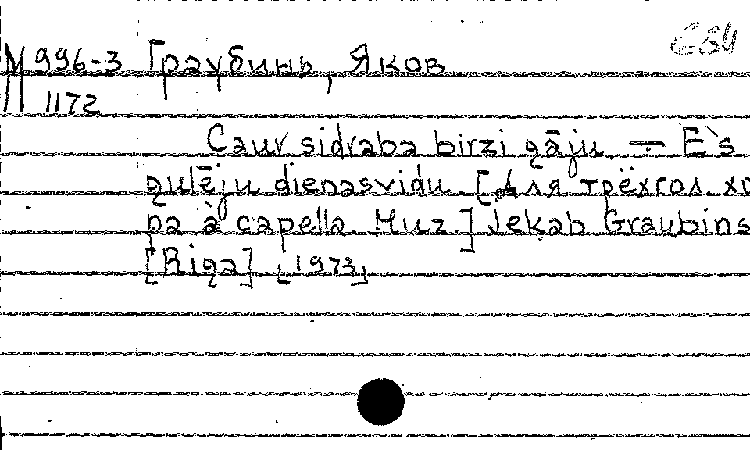 М 996-3 Граубинь, Яков
1172
Caur sidraba birzi gāju. — E`s
gulēju dienasvidu. [Для трёхгол. хо
ра à capella. Muz.] Jekab Graubins
[Riga] [1973]